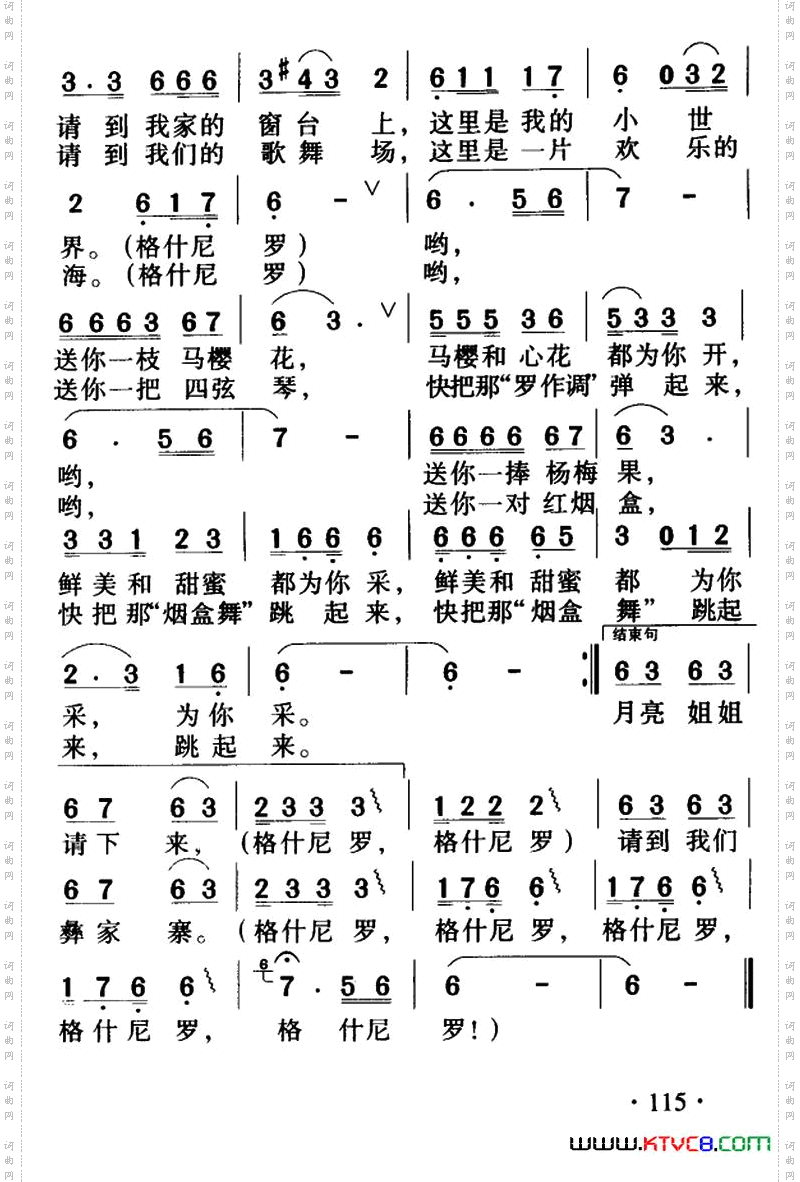 3·3 666 | 3#43 2 | 611 17 | 6 032
请到我家的 窗台 上，这里是我的 小 世
请到我们的 歌舞 场，这里是一片 欢 乐的
2 617 | 6 - ∨ | 6 · 56 | 7 -
界。（格什尼 罗） 哟，
海。（格什尼 罗） 哟，
6663 67 | 6 3 · ∨ | 555 36 | 533 3
送你一枝 马樱 花， 马樱和 心花 都为你 开，
送你一把 四弦 琴， 快把那“罗作调”弹 起 来，
6 · 56 | 7 - | 6666 67 | 63 ·
哟， 送你一捧 杨梅 果，
哟， 送你一对 红烟 盒，
331 23 | 166 6 | 666 65 | 3 012
鲜美和 甜蜜 都为你 采，鲜美和 甜蜜 都 为你
快把那“烟盒舞”跳 起 来，快把那“烟盒 舞”跳起
结束句
2·3 16 | 6 - | 6 - :‖ 63 63
采， 为你 采。 月亮 姐姐
来， 跳起 来。
67 63 | 233 3 | 122 2 | 63 63
请下 来，（格什尼 罗，格什尼 罗）请到 我们
67 63 | 233 3 | 176 6 | 176 6
彝家 寨。（格什尼 罗，格什尼 罗，格什尼 罗，
176 6 | 6 7·56 | 6 - | 6 - ‖
格什尼 罗， 格 什尼 罗！）
·115·
WWW.KTVC8.COM
词曲网